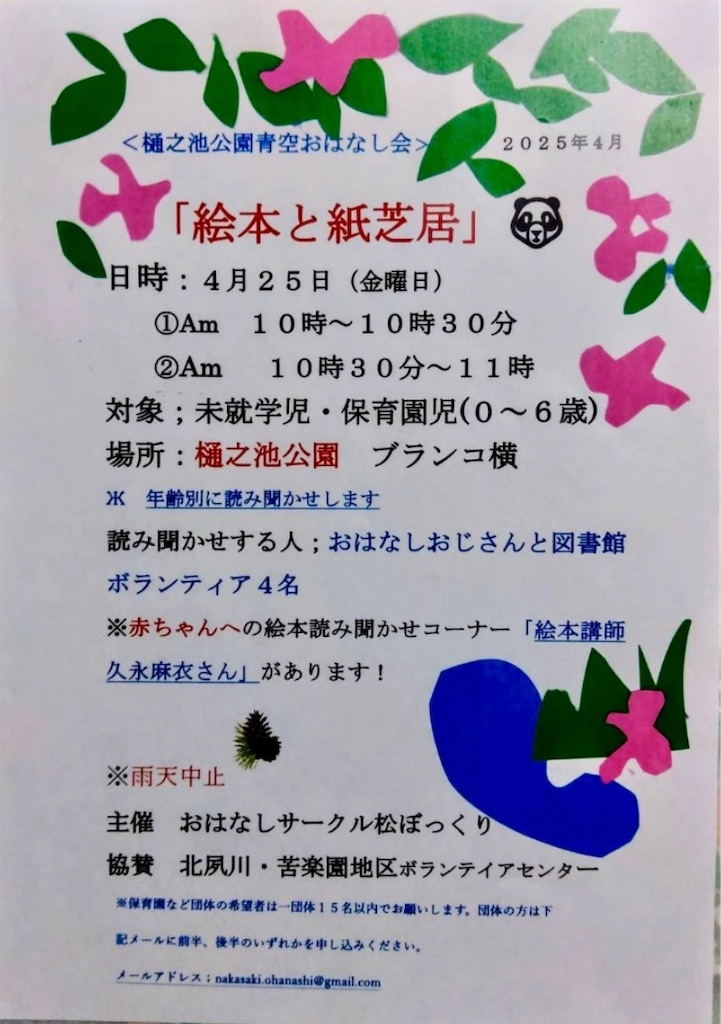 ＜樋之池公園青空おはなし会＞ ２０２５年４月
「絵本と紙芝居」
日時：４月２５日（金曜日）
①Am １０時～１０時３０分
②Am １０時３０分～１１時
対象；未就学児・保育園児(０～６歳)
場所：樋之池公園 ブランコ横
Ж 年齢別に読み聞かせします
読み聞かせする人；おはなしおじさんと図書館
ボランティア４名
※赤ちゃんへの絵本読み聞かせコーナー「絵本講師
久永麻衣さん」があります！
※雨天中止
主催 おはなしサークル松ぼっくり
協賛 北夙川・苦楽園地区ボランテイアセンター
※保育園など団体の希望者は一団体１５名以内でお願いします。団体の方は下
記メールに前半、後半のいずれかを申し込みください。
メールアドレス；nakasaki.ohanashi@gmail.com